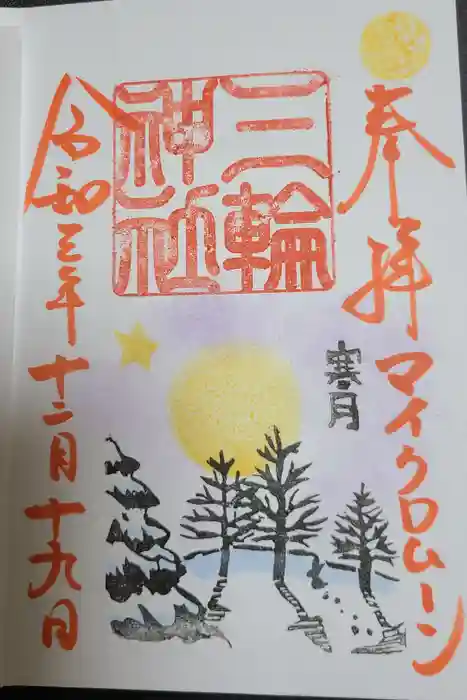 奉拝
マイクロムーン
寒月
三輪
神社
令和三年
十二月十九日